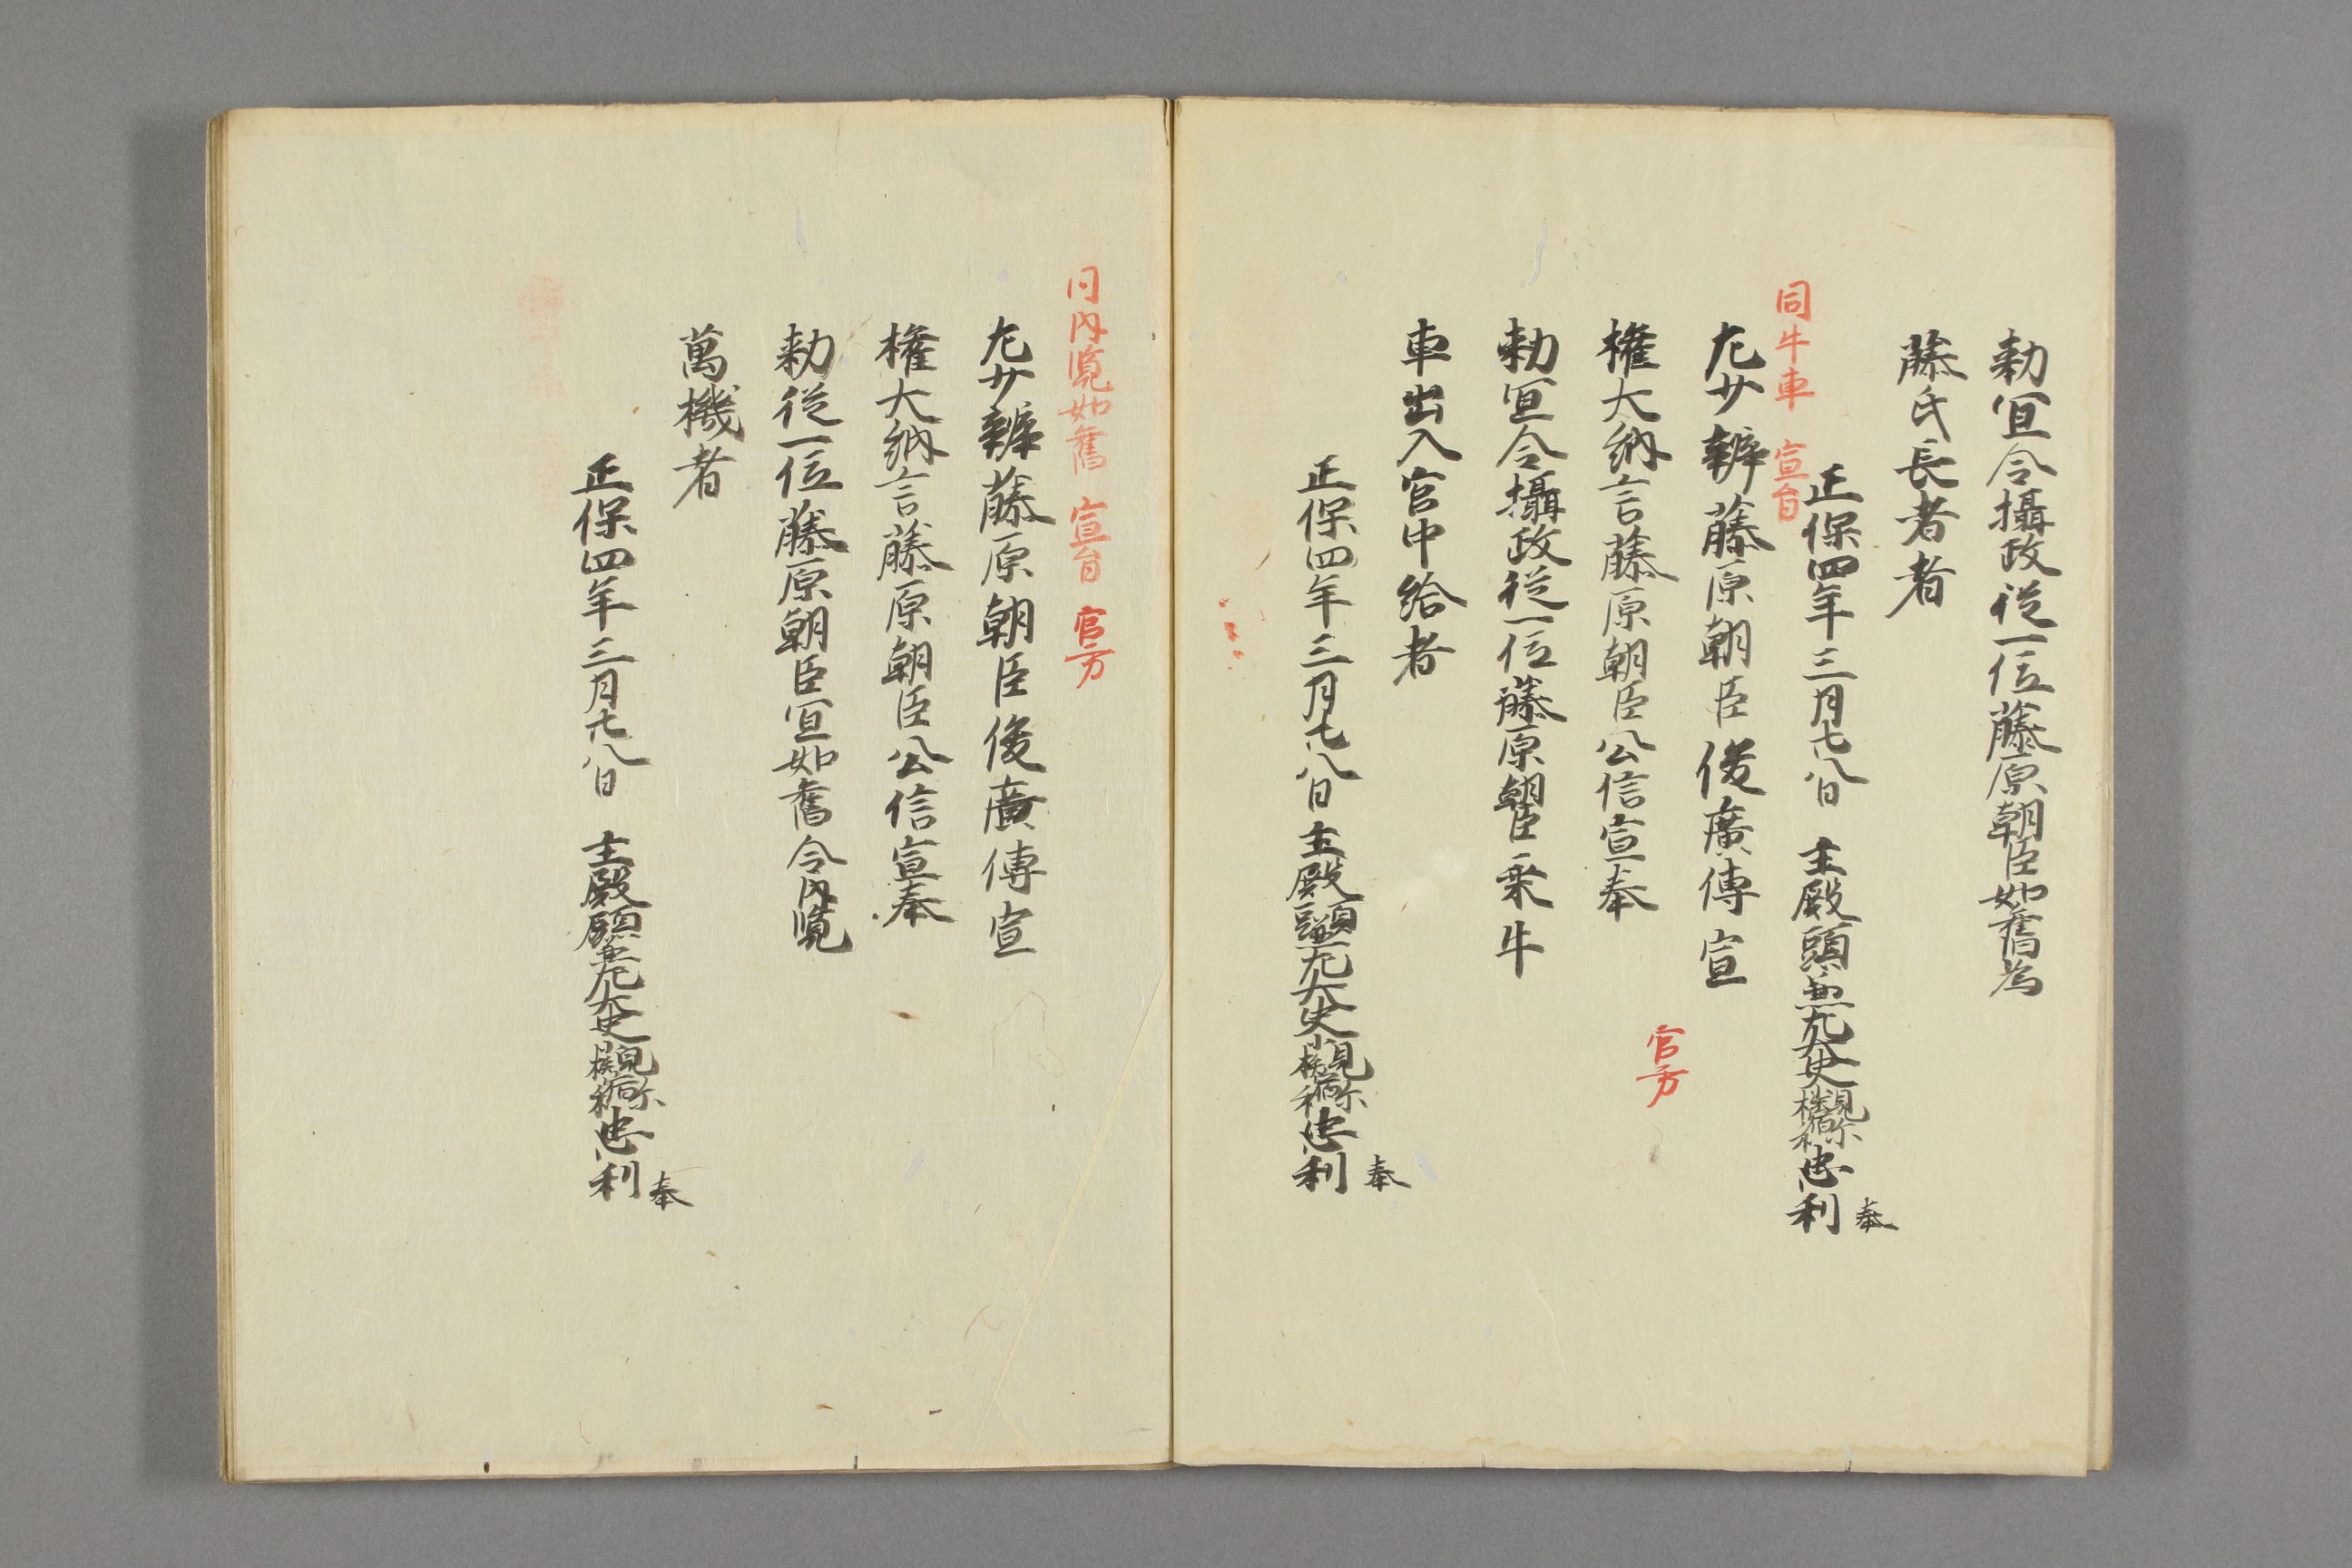 勅宣令攝政從一位藤原朝臣如舊為
藤氏長者者
正保四年三月廿八日 主殿頭兼左大史小槻宿祢忠利奉
同牛車 宣旨 官方
左少辨藤原朝臣俊廣傳宣
權大納言藤原朝臣公信宣奉
勅宣令攝政從一位藤原朝臣乘牛
車出入宮中給者
正保四年三月廿八日 主殿頭兼左大史小槻宿祢忠利奉
同内覽如舊 宣旨 官方
左少辨藤原朝臣俊廣傳宣
權大納言藤原朝臣公信宣奉
勅從一位藤原朝臣宣如舊令内覽
萬機者
正保四年三月廿八日 主殿頭兼左大史小槻宿祢忠利奉